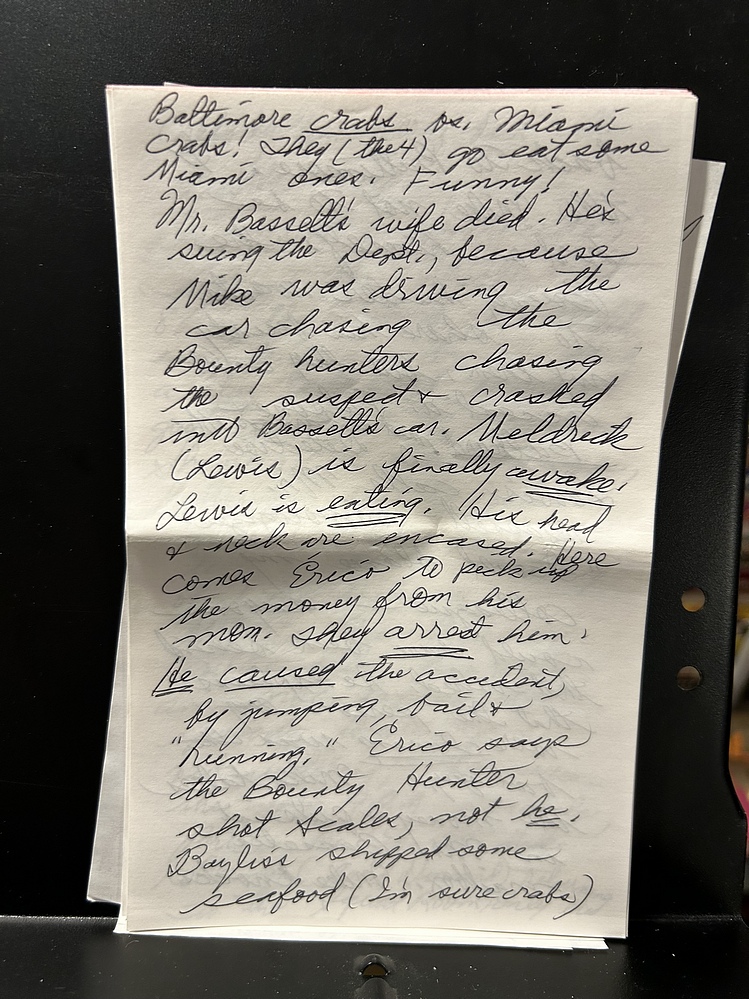 Baltimore crabs vs. Miami
crabs! They (the 4) go eat some
Miami ones. Funny!
Mr. Bassett's wife died. He's
suing the Dept., because
Mike was driving the
car chasing the
Bounty hunters chasing
the suspect & crashed
into Bassett's car. Meldrick
(Lewis) is finally awake.
Lewis is eating. His head
& neck are encased. Here
comes Erico to pick up
the money from his
mom. They arrest him.
He caused the accident,
by jumping, bail &
"running." Erico says
the Bounty Hunter
shot Scales, not he.
Bayliss shipped some
seafood (I'm sure crabs)